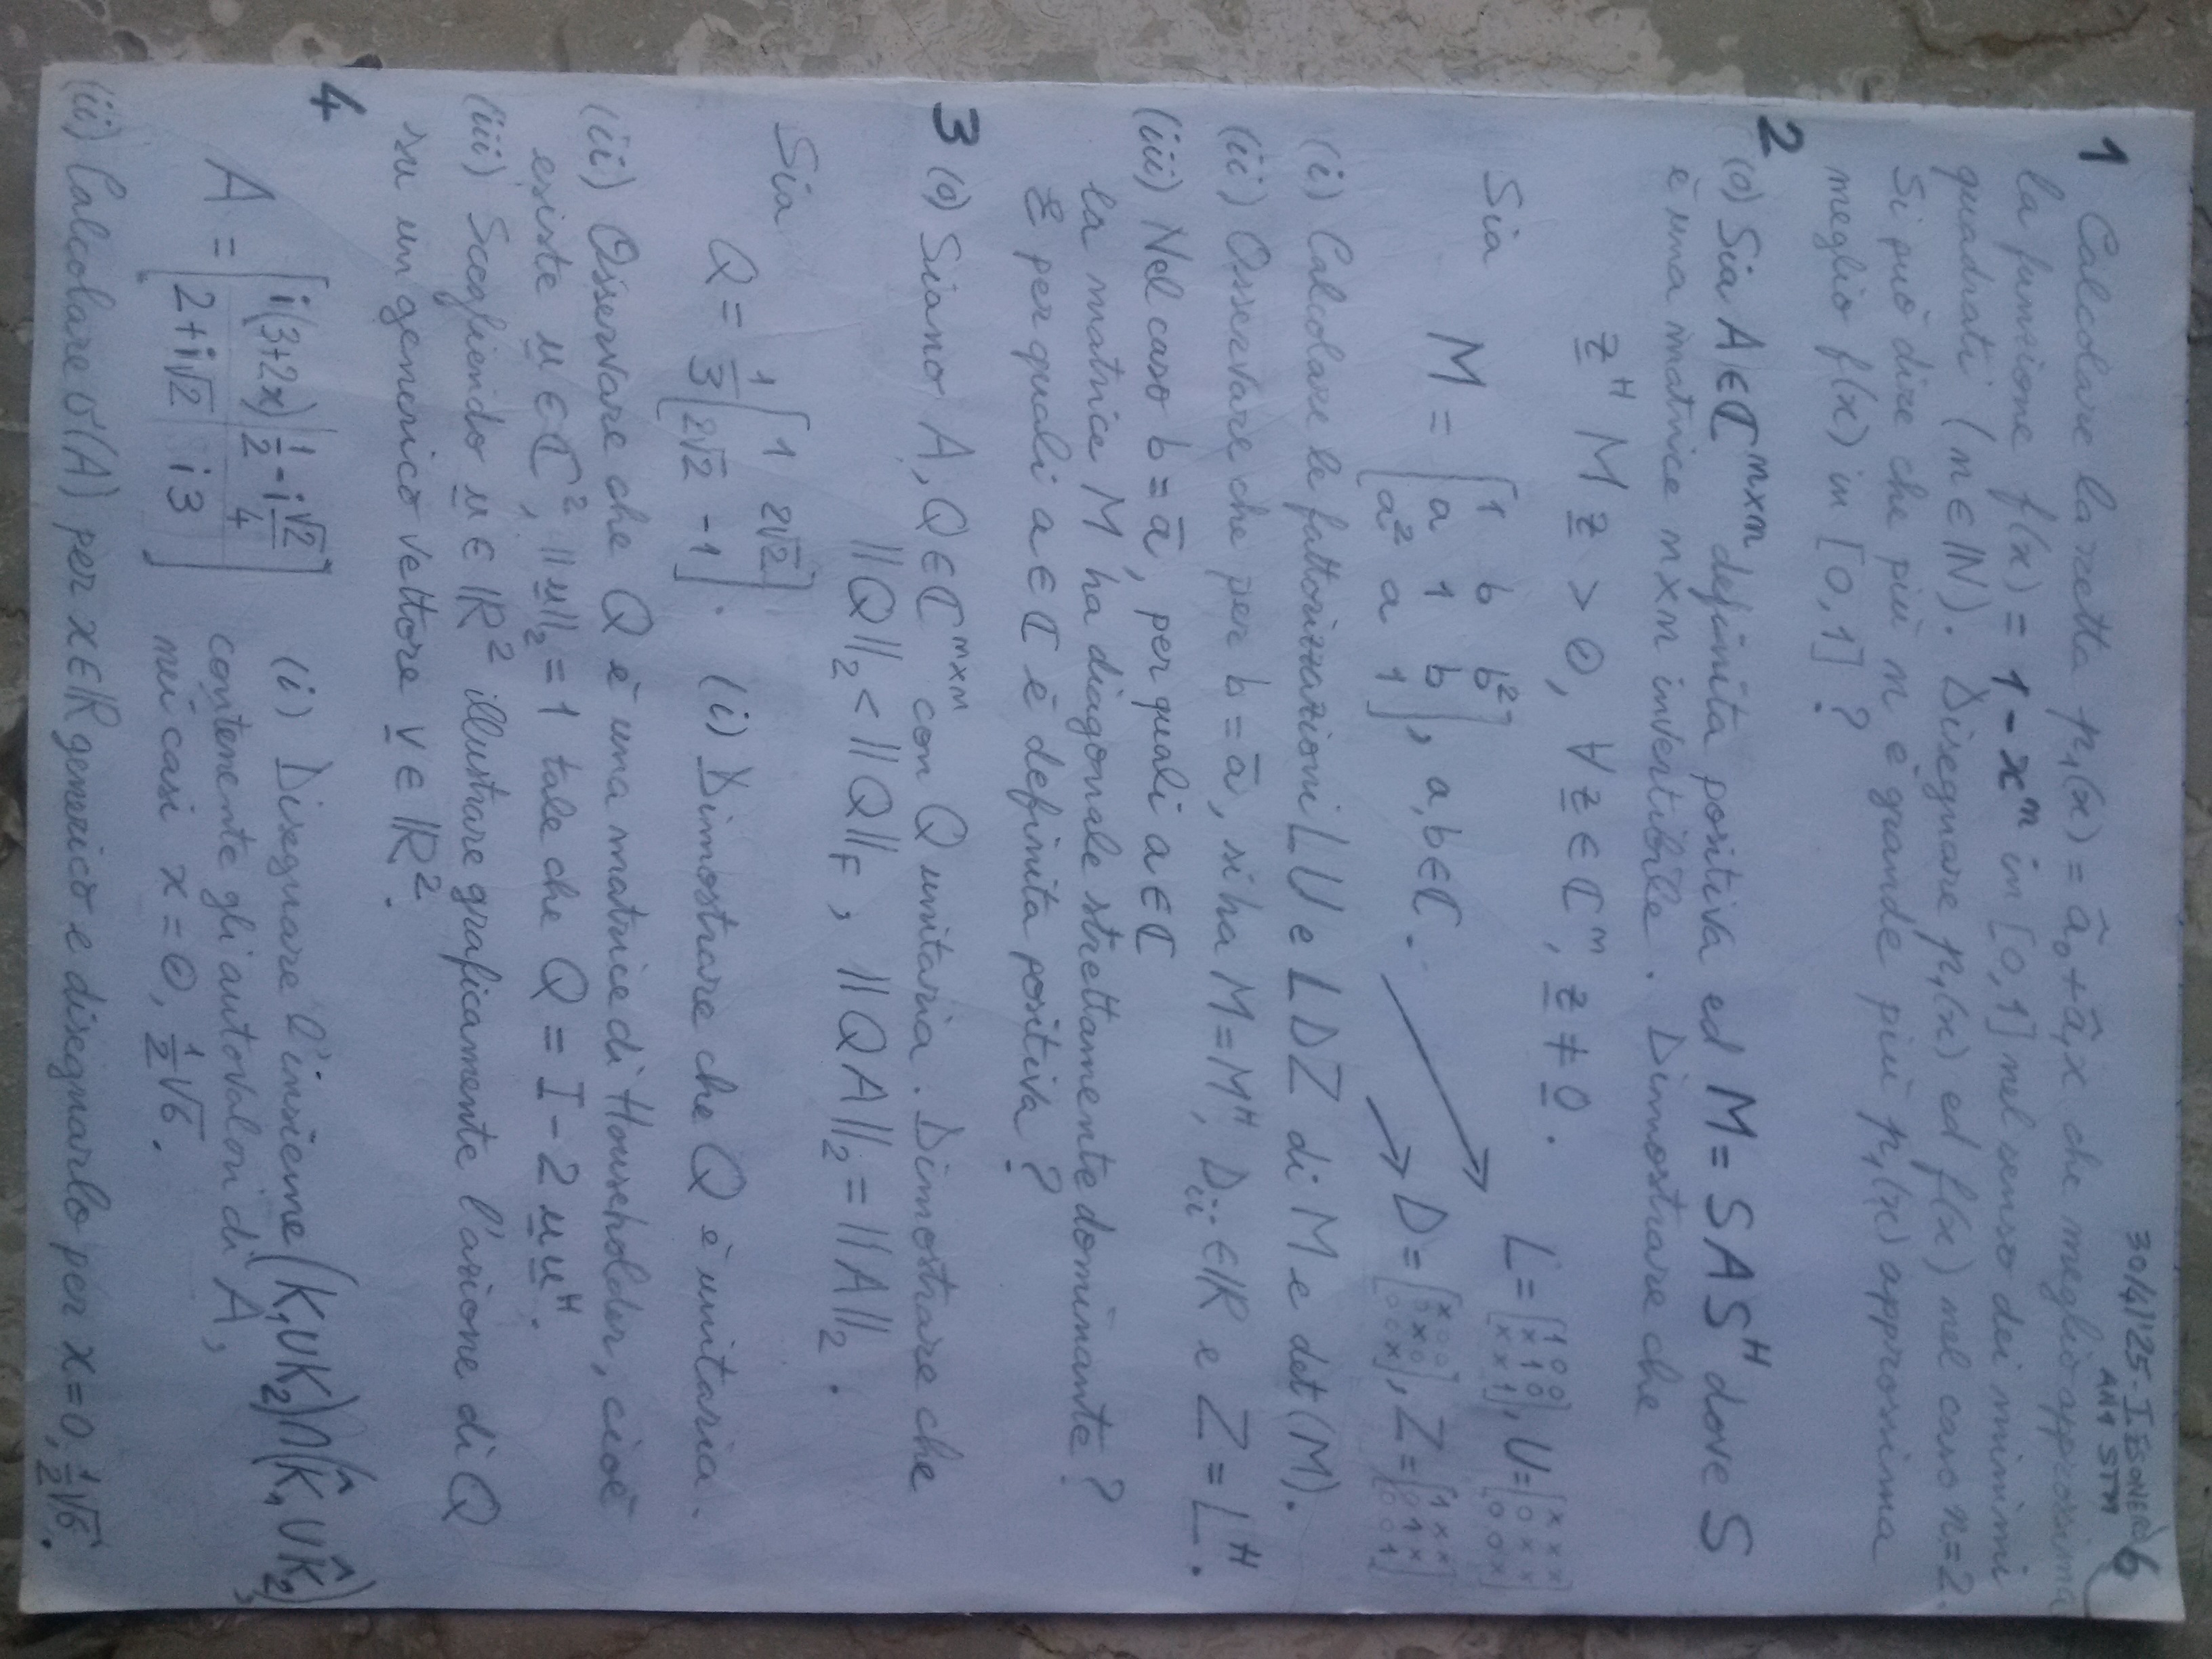 30/4/25 - I ESONERO 6
AN1 STM
1 Calcolare la retta p₁(x) = â₀ + â₁x che meglio approssima
la funzione f(x) = 1 - xⁿ in [0,1] nel senso dei minimi
quadrati (n ∈ ℕ). Disegnare p₁(x) ed f(x) nel caso n=2.
Si può dire che più n è grande più p₁(x) approssima
meglio f(x) in [0,1] ?
2 (o) Sia A ∈ ℂⁿˣⁿ definita positiva ed M = S A Sᴴ dove S
è una matrice n×n invertibile. Dimostrare che
z̲ᴴ M z̲ > 0, ∀ z̲ ∈ ℂⁿ, z̲ ≠ 0̲.
Sia M = [1 b b² / a 1 b / a² a 1], a,b ∈ ℂ. → L = [1 0 0 / x 1 0 / x x 1], U = [x x x / 0 x x / 0 0 x]
→ D = [x 0 0 / 0 x 0 / 0 0 x], Z = [1 x x / 0 1 x / 0 0 1]
(i) Calcolare le fattorizzazioni LU e LDZ di M e det(M).
(ii) Osservare che per b = ā, si ha M = Mᴴ, Dᵢᵢ ∈ ℝ e Z = Lᴴ.
(iii) Nel caso b = ā, per quali a ∈ ℂ
la matrice M ha diagonale strettamente dominante?
E per quali a ∈ ℂ è definita positiva?
3 (o) Siano A, Q ∈ ℂⁿˣⁿ con Q unitaria. Dimostrare che
||Q||₂ < ||Q||F, ||QA||₂ = ||A||₂.
Sia
Q = 1/3 [1 2√2 / 2√2 -1]. (i) Dimostrare che Q è unitaria.
(ii) Osservare che Q è una matrice di Householder, cioè
esiste u̲ ∈ ℂ², ||u̲||₂ = 1 tale che Q = I - 2 u̲ u̲ᴴ.
(iii) Scegliendo u̲ ∈ ℝ² illustrare graficamente l'azione di Q
su un generico vettore v̲ ∈ ℝ².
4 (i) Disegnare l'insieme (K₁∪K₂)∩(K̂₁∪K̂₂),
A = [i(3+2x) 1/2 - i√2/4 / 2+i√2 i3] contenente gli autovalori di A,
nei casi x = 0, 1/2 √6.
(ii) Calcolare σ(A) per x ∈ ℝ generico e disegnarlo per x = 0, 1/2 √6.